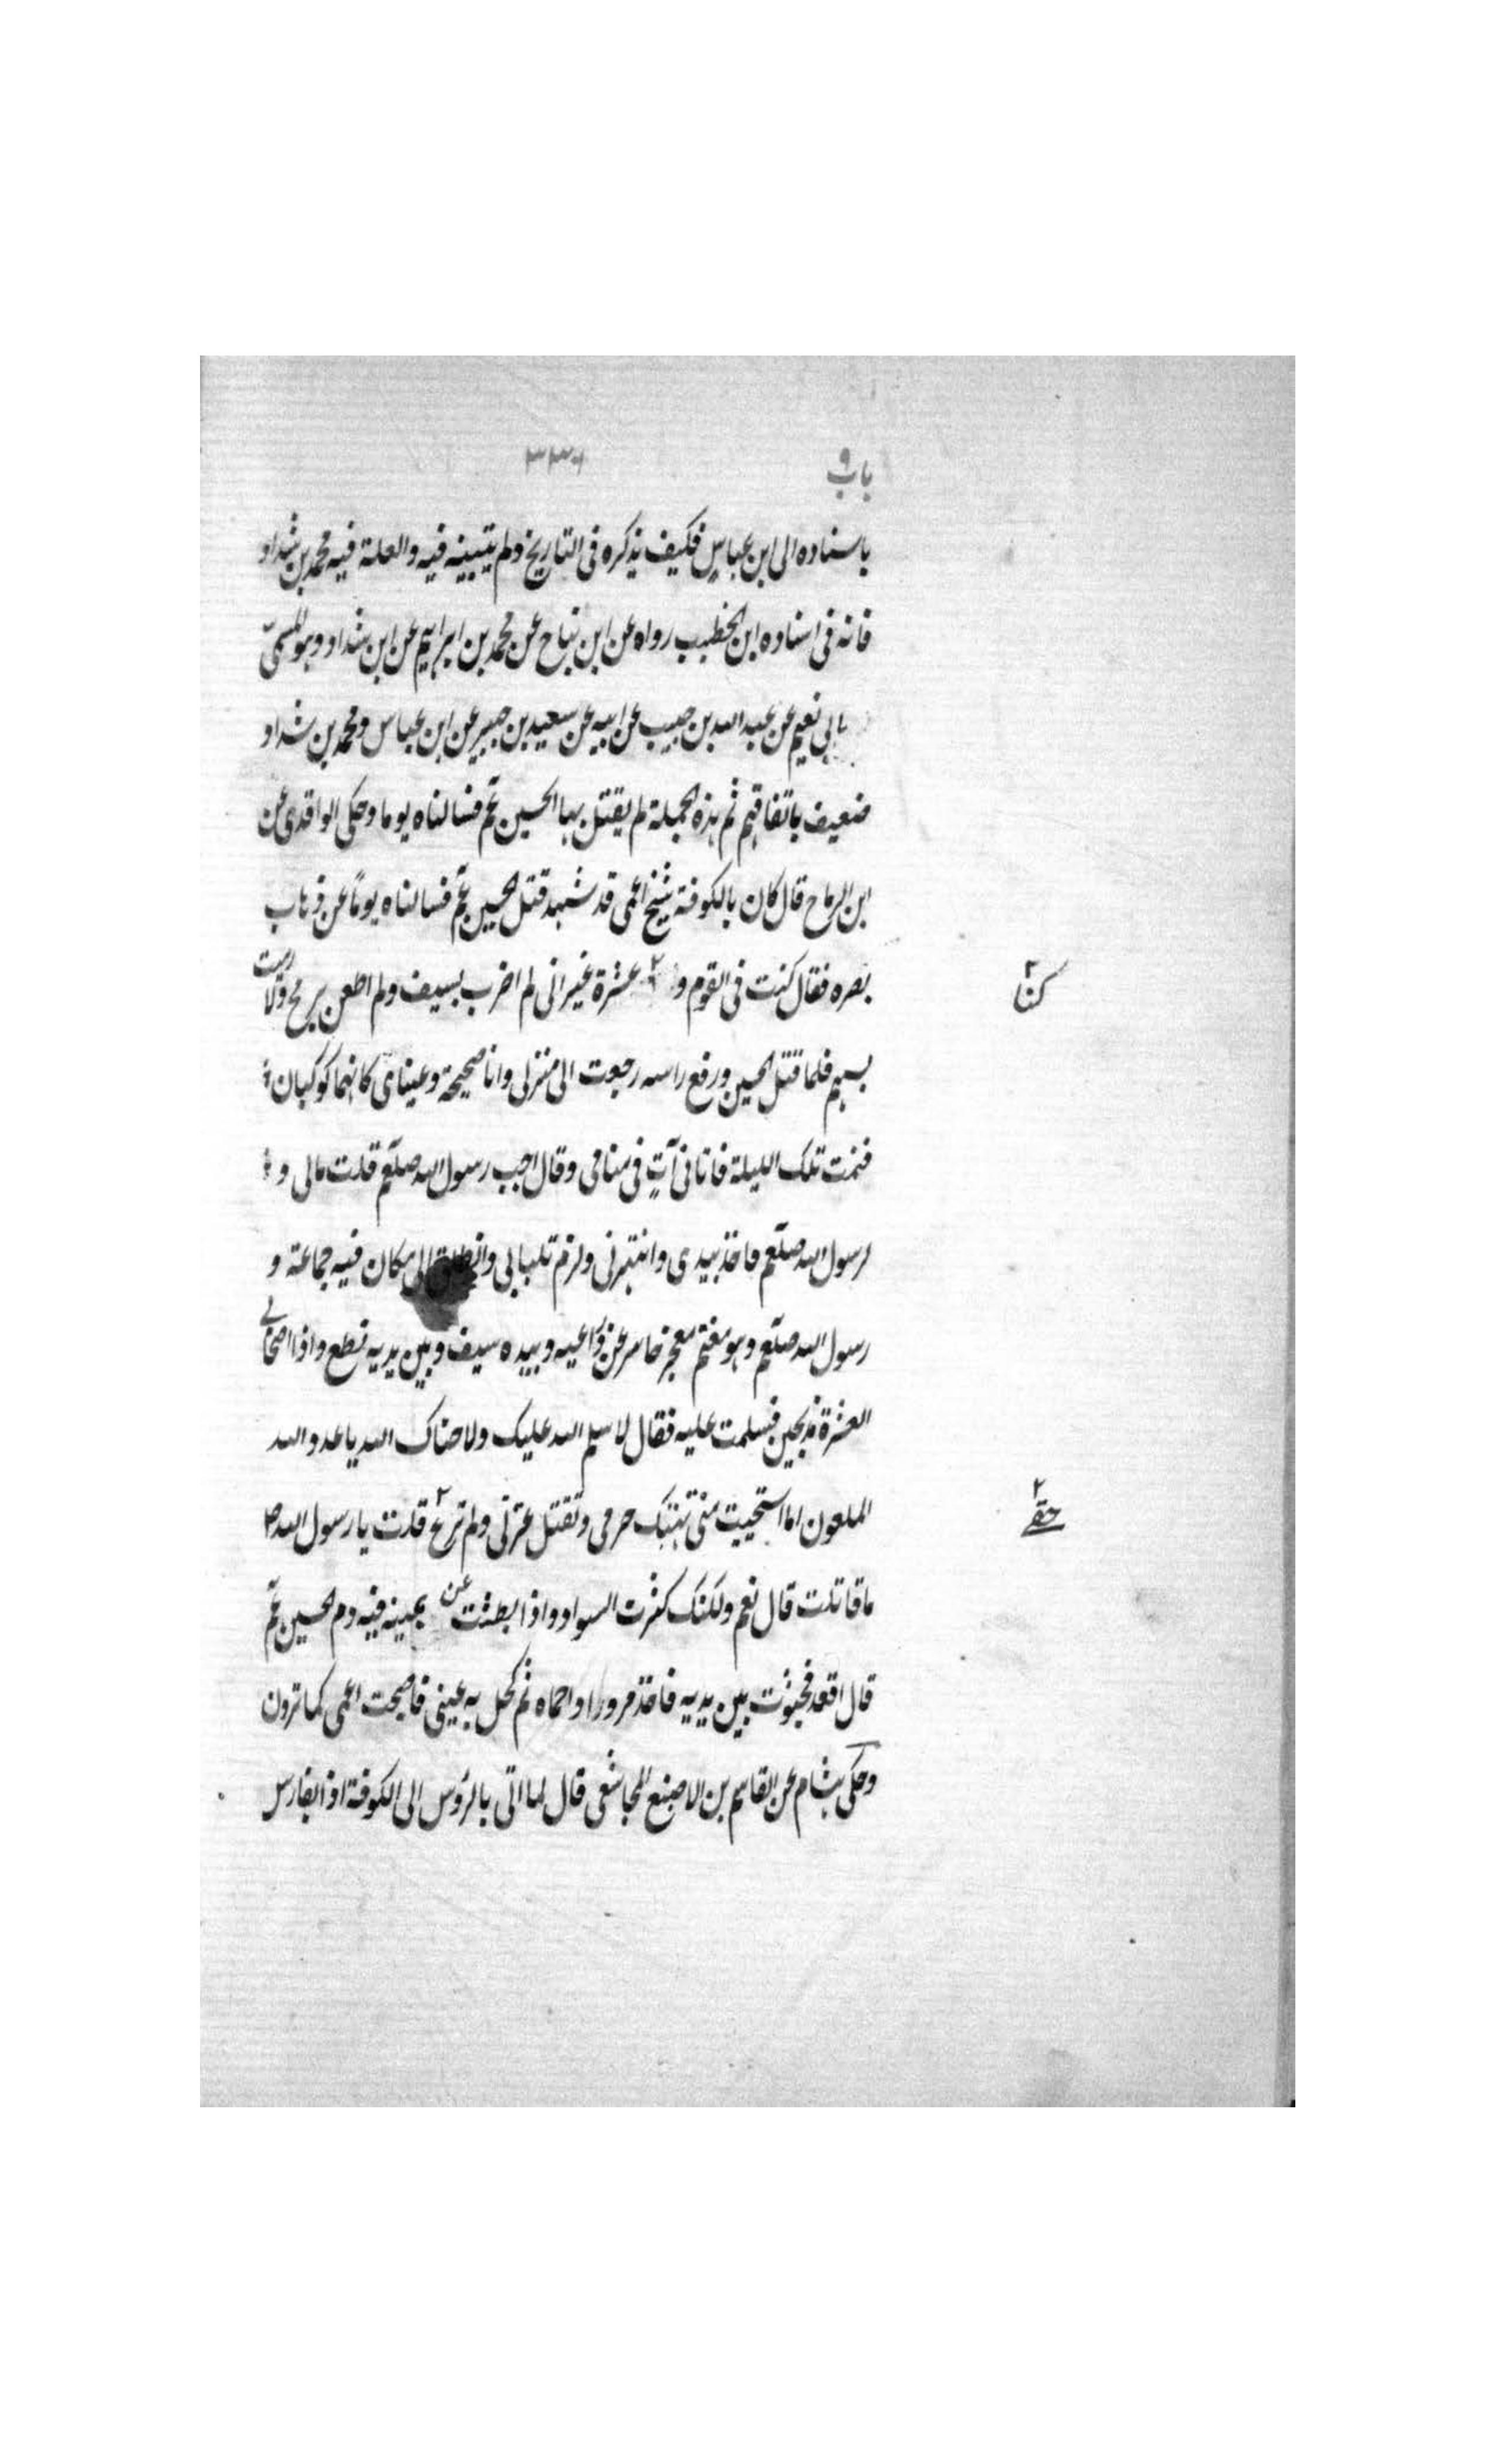 باب ٩
٣٣٠
باسناده الى ابن عباس فكيف يذكره فى التاريخ ولم يتبينه فيه والعلة فيه محمد بن شداد
فانه فى اسناده ابن الخطيب رواه عن ابن نباح عن محمد بن ابراهيم عن ابن شداد وهو المسمّى
بابى نعيم عن عبد الله بن حبيب عن ابيه عن سعيد بن جبير عن ابن عباس ومحمد بن شداد
ضعيف باتفاقهم ثم هذه الجملة لم يقتل بها الحسين عم فسالناه يوما وحكى الواقدى عن
ابن الرماح قال كان بالكوفة شيخ اعمى قد شهد قتل الحسين عم فسالناه يومًا عن ذهاب
بصره فقال كنت فى القوم و عشرة غير انى لم اضرب بسيف ولم اطعن برمح ولا رميت
كنا
بسهم فلما قتل الحسين ورفع راسه رجعت الى منزلى وانا صحيحة وعيناى كانهما كوكبان
فنمت تلك الليلة فاتانى آتٍ فى منامى وقال اجب رسول الله صلعم قلت مالى و
لرسول الله صلعم فاخذ بيدى وانتهرنى ولزم تلبابى وانطلق الى مكان فيه جماعة و
رسول الله صلعم وهو مغتم معجز حاسر عن ذراعيه وبيده سيف وبين يديه نطع واذا اصحابى
العشرة مذبحين فسلمت عليه فقال لا سلم الله عليك ولا حياك الله يا عدو الله
الملعون اما استحييت منى تهتك حرمى وتقتل عترتى ولم ترع قلت يا رسول الله ص
حقى
ما قاتلت قال نعم ولكنك كثرت السواد واذا بطشت عن يمينه فيه دم الحسين عم
قال اقعد فجثوت بين يديه فاخذ مرودا واحماه ثم كحل به عينى فاصبحت اعمى كما ترون
وحكى هشام عن القاسم بن الاصبغ المجاشعى قال لما اتى بالرؤس الى الكوفة اذا بفارس